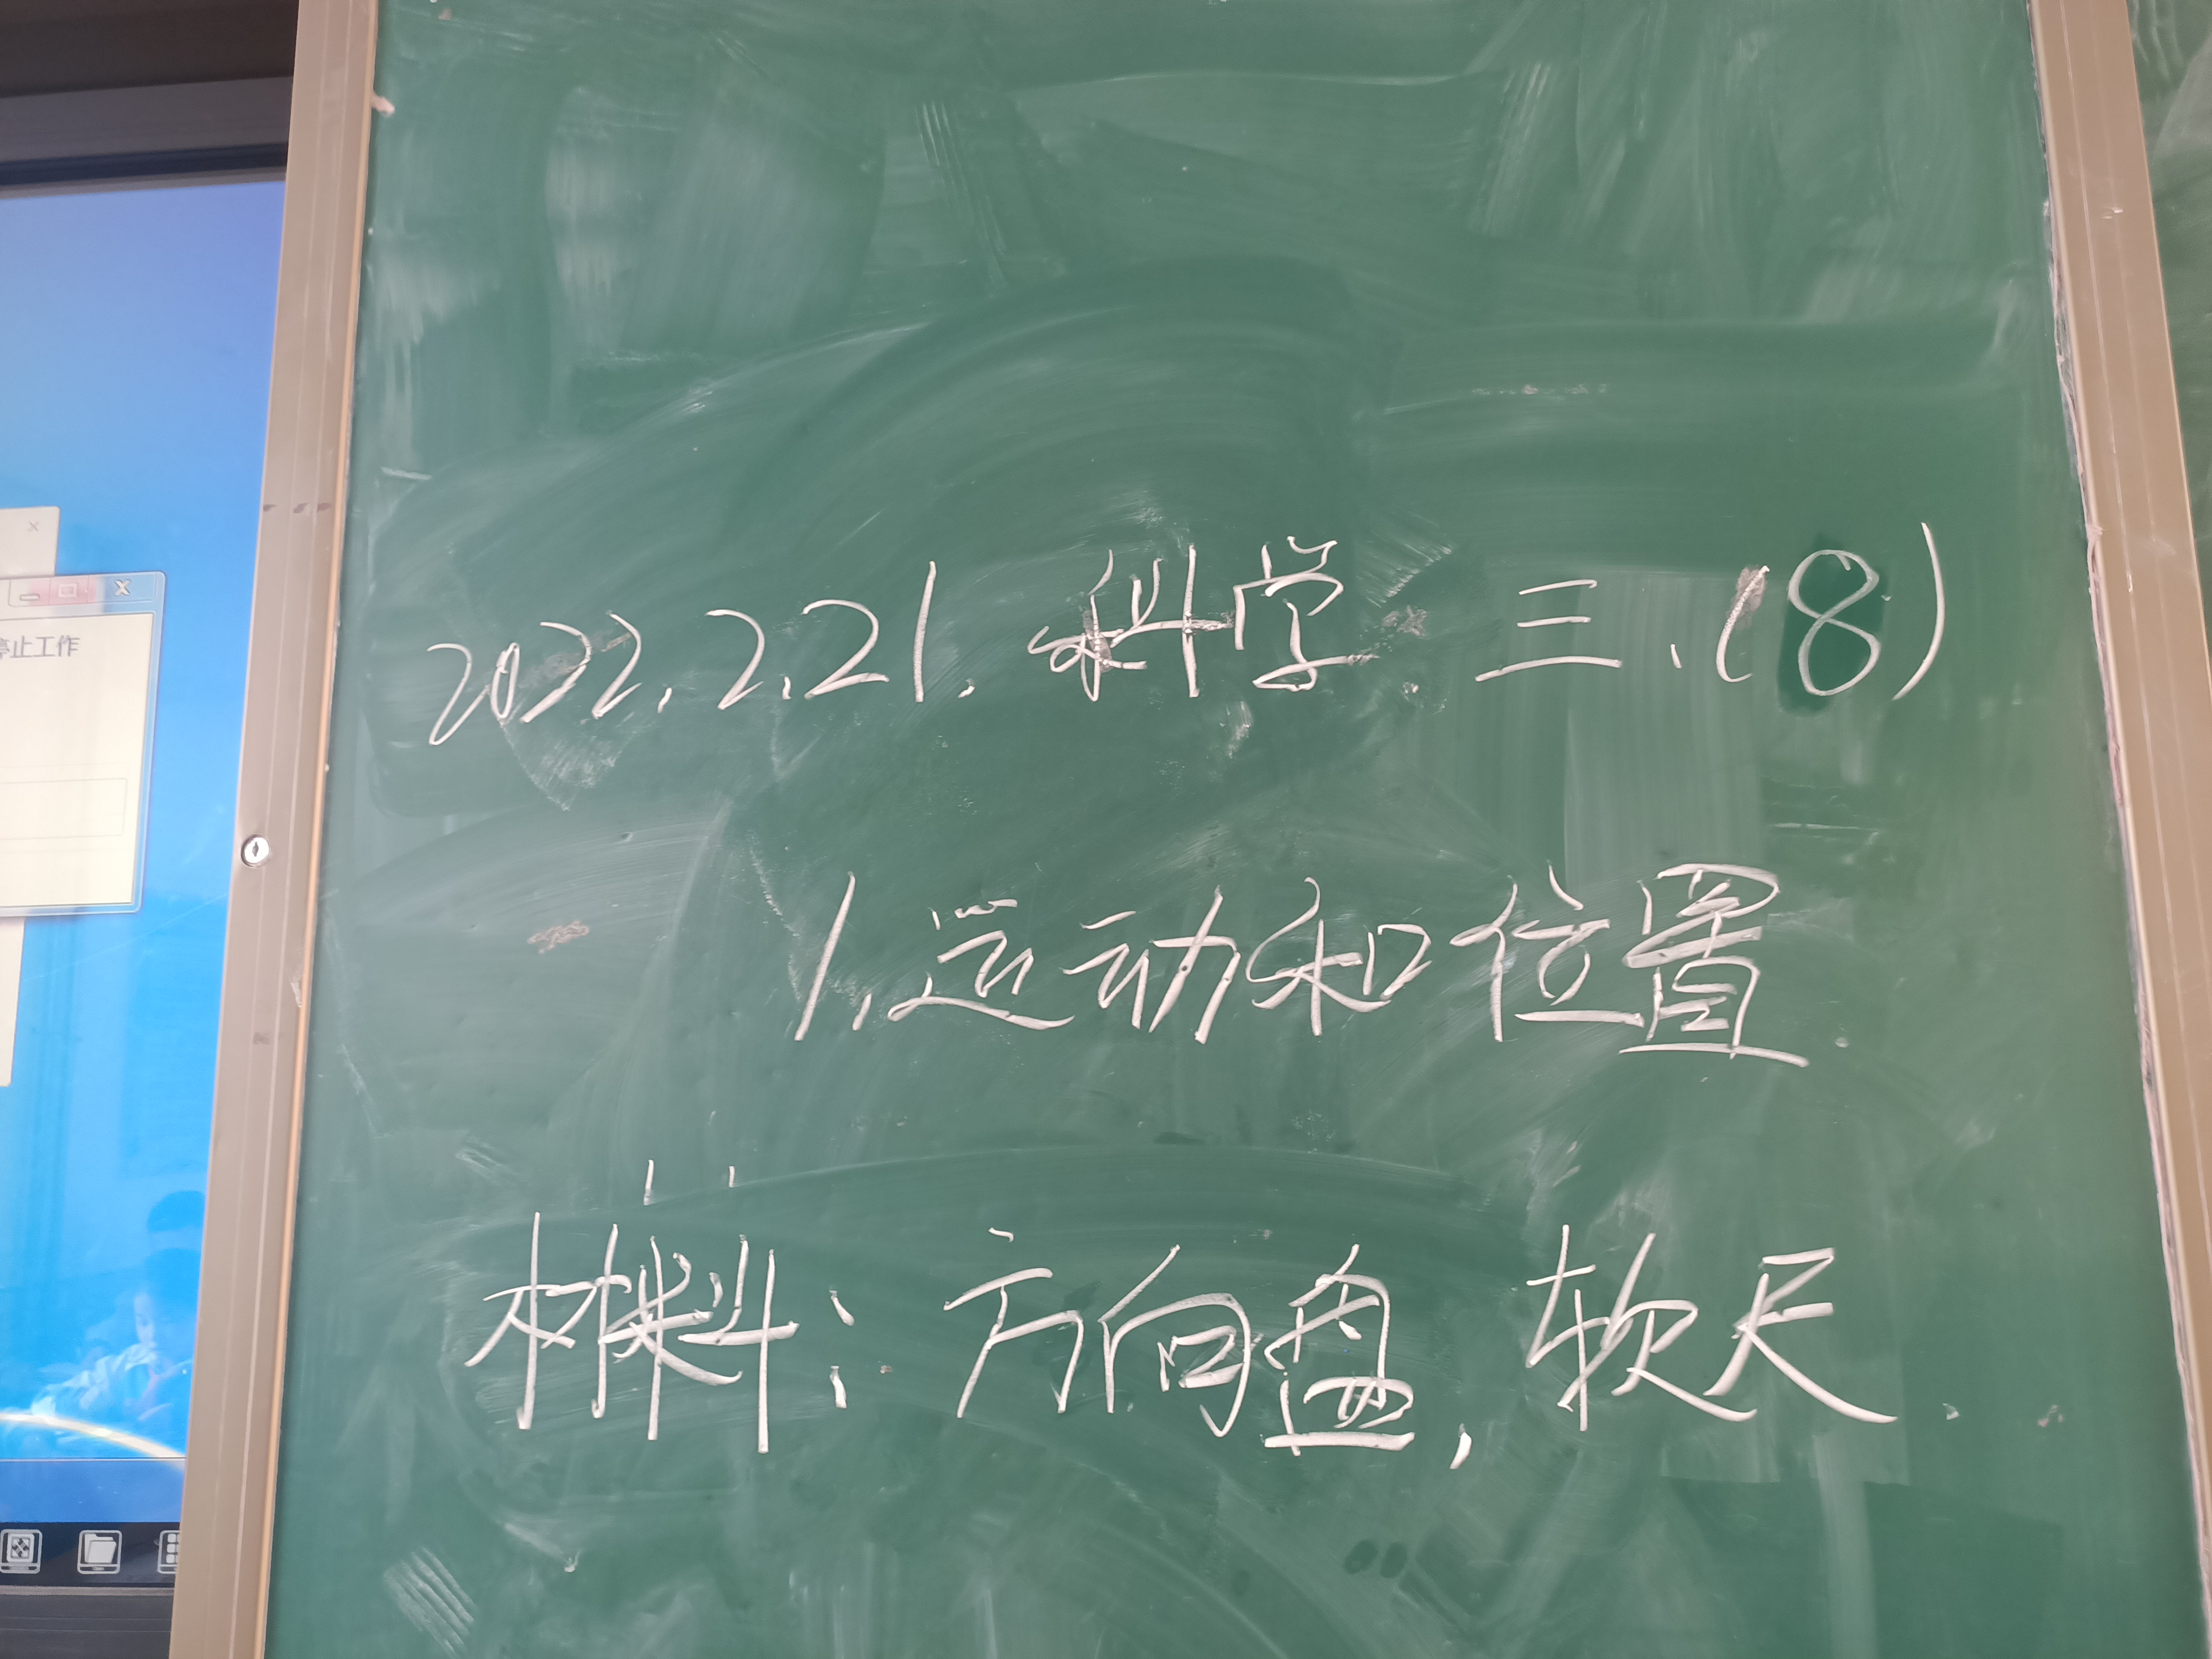 停止工作
2022.2.21. 科学 三.(8)
1.运动和位置.
材料: 方向盘, 软尺.